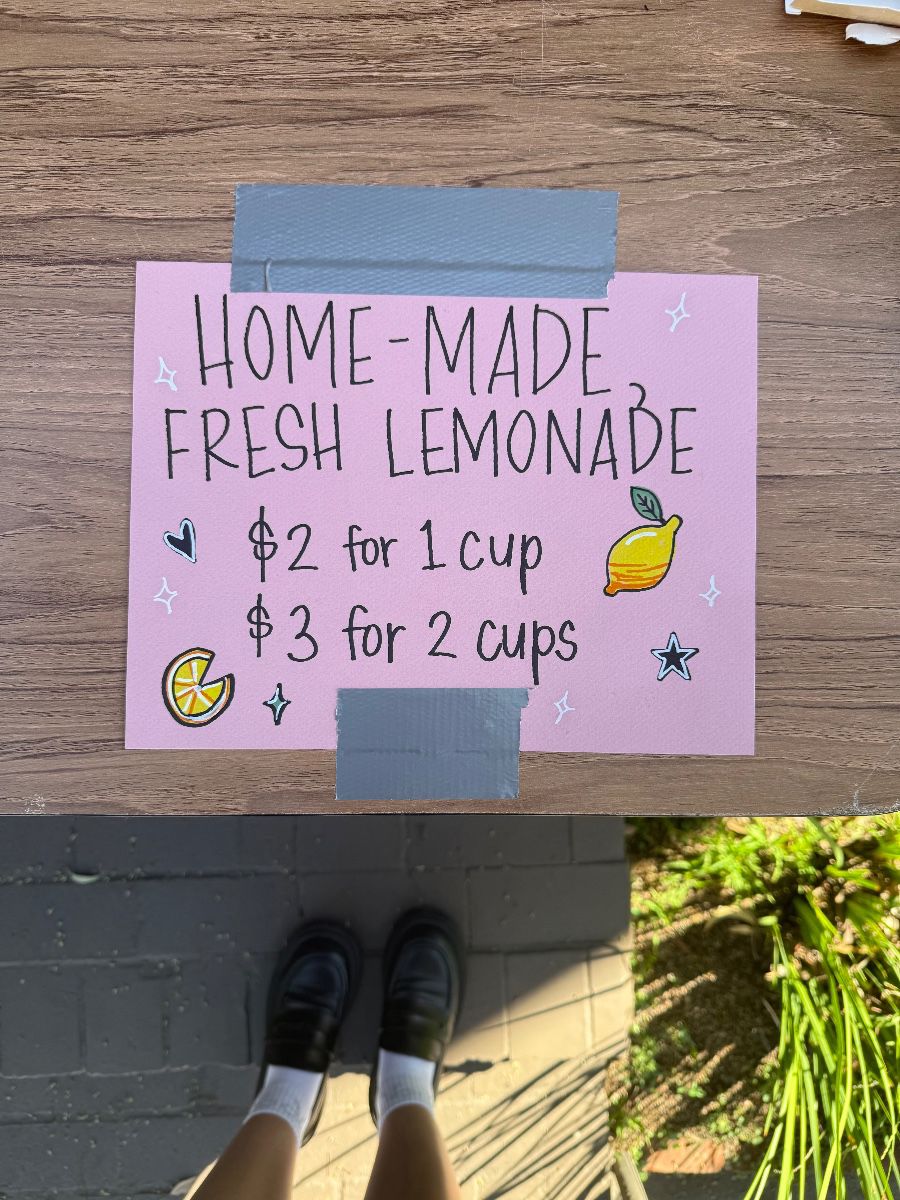 HOME-MADE,
FRESH LEMONADE
$2 for 1 cup
$3 for 2 cups